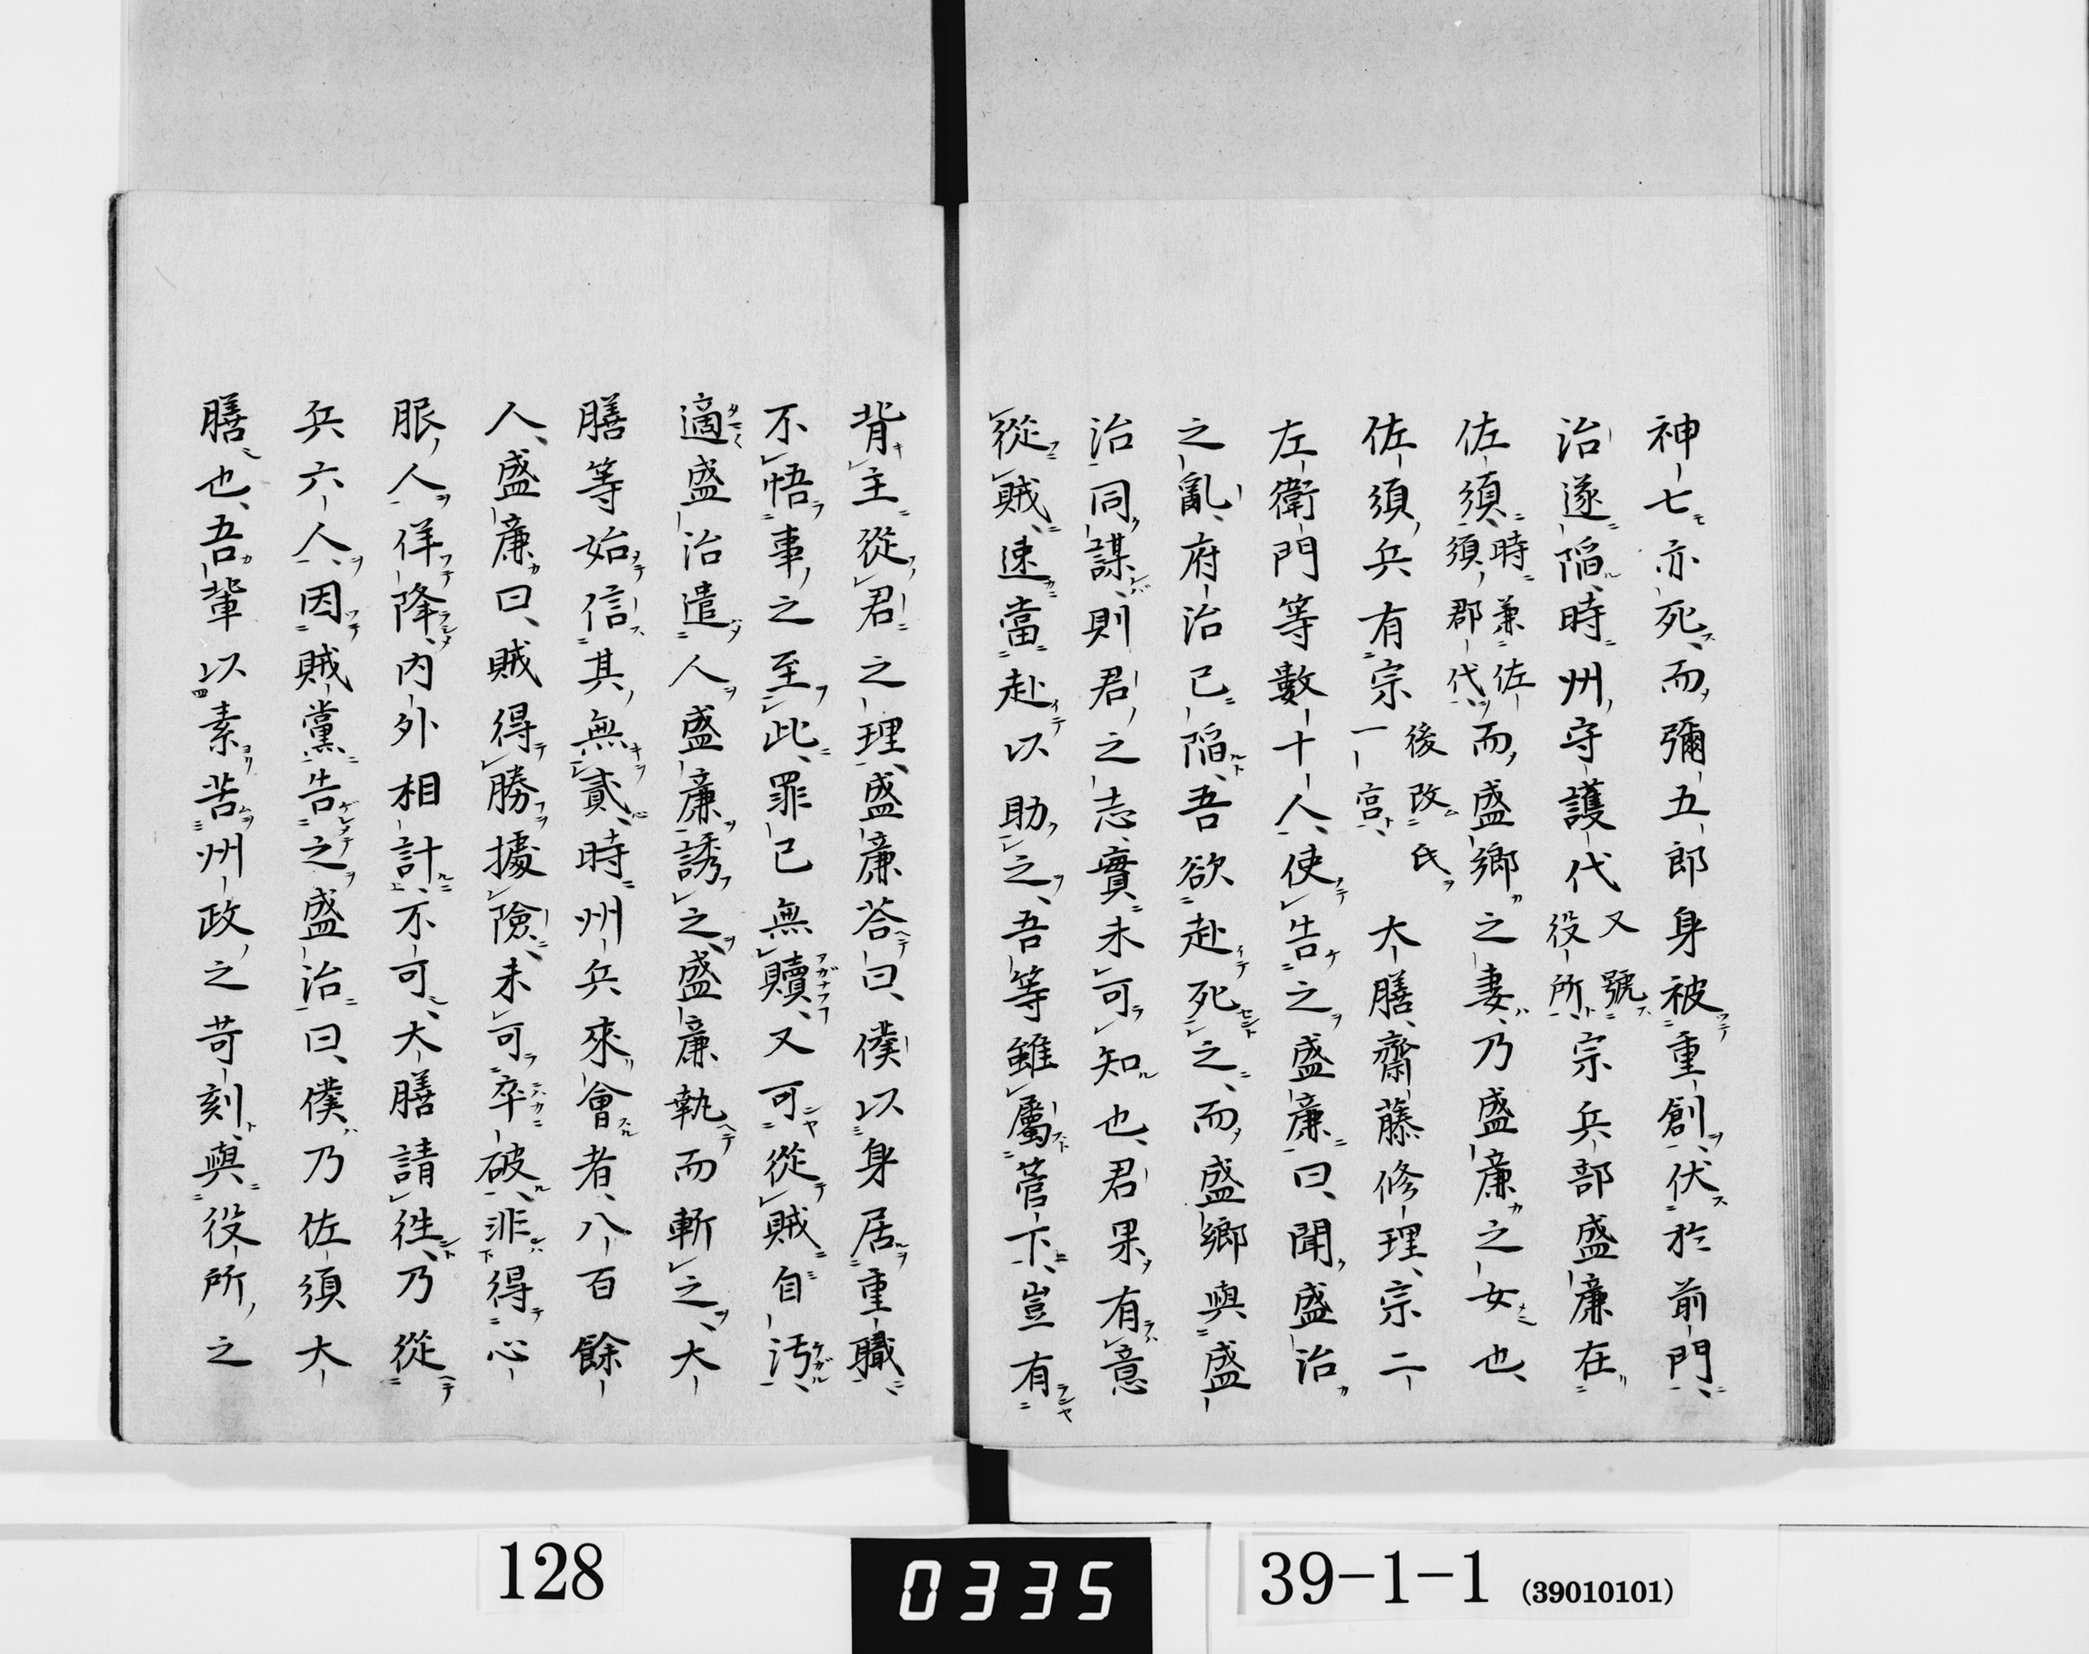 神七亦死而彌五郎身被重創伏於前門
治遂陷時州守護代又號役所宗兵部盛廉在
佐須時兼佐須郡代而盛鄉之妻乃盛廉之女也
佐須兵有宗後改氏一宮大膳齋藤修理宗二
左衛門等數十人使告之盛廉曰聞盛治
之亂府治已陷吾欲赴死之而盛鄉與盛
治同謀則君之志實未可知也君果有意
從賊速當赴以助之吾等雖屬管下豈有
背主從君之理盛廉荅曰僕以身居重職
不悟事之至此罪已無贖又可從賊自汚
適盛治遣人盛廉誘之盛廉執而斬之大
膳等始信其無貳時州兵來會者八百餘
人盛廉曰賊得勝據險未可卒破非得心
服人佯降内外相計不可大膳請往乃從
兵六人因賊黨告之盛治曰僕乃佐須大
膳也吾輩以素苦州政之苛刻與役所之
128
0335
39-1-1 (39010101)